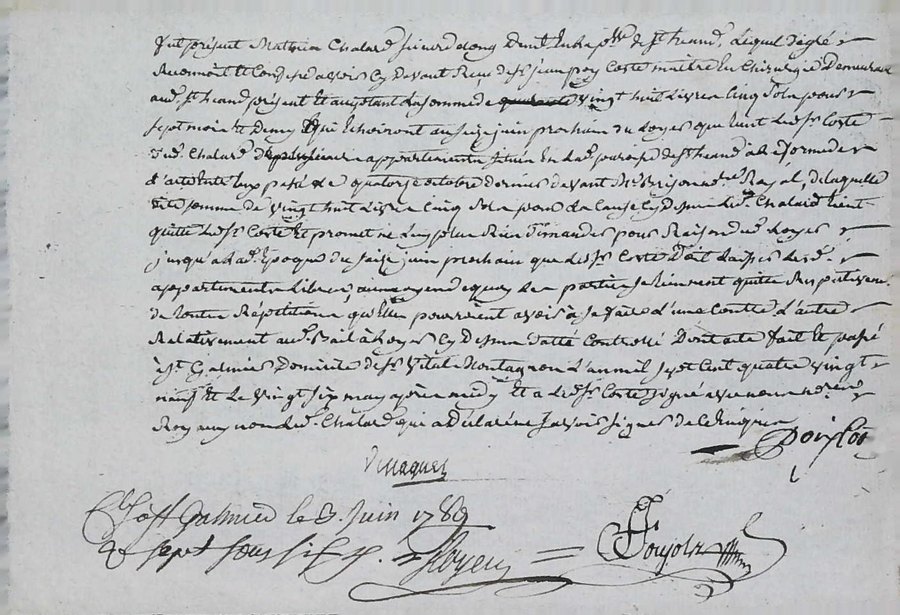 fut présent Mathieu Chalard sieur dong demt en la psse de st heand, Lequel de gré
Reconnoit et Confesse avoir cy devant Reçu de sr jean poy Corte maitre En Chirurgie Demeurant
aud. st heand présent et acceptant la somme de vingt huit livres Cinq Sols pour
sept mois et Demy qui Echoiront au seize juin prochain du Loyer que tient led. sr Corte
dud. Chalard de appartements situés En lad. paroisse de st heand à la forme de
l'acte Entre Eux passé le quatorze octobre dernier devant Me notre Royal, de laquelle
dite somme de vingt huit livres Cinq Sols pour la Cause Cy dessus led. Chalard tient
quitte led. sr Corte Et promet ne luy plus Rien Demander pour Raison desd. Loyers
jusqu'à lad. Epoque du seize juin prochain que led. sr Corte Doit laisser lesd.
appartements Libres, au moyen de quoy les parties se tiennent quitte Respectivement
de toutte Répétition qu'Elles pourroient avoir à se faire l'une Contre l'autre
Relativement aud. Bail à Loyer Cy dessus datté Controllé Dont acte fait Et passé
à st Galmier Domicile de sr Vital Montagnon L'an mil sept Cent quatre vingt
neuf Et Le vingt six may après midy Et a led. sr Corte signé avec nous notre
Royal non led. Chalard qui a Déclaré ne savoir signer de ce Enquis
Poy Corte
Clé à st Galmier le 3 Juin 1789
R sept sous six d.